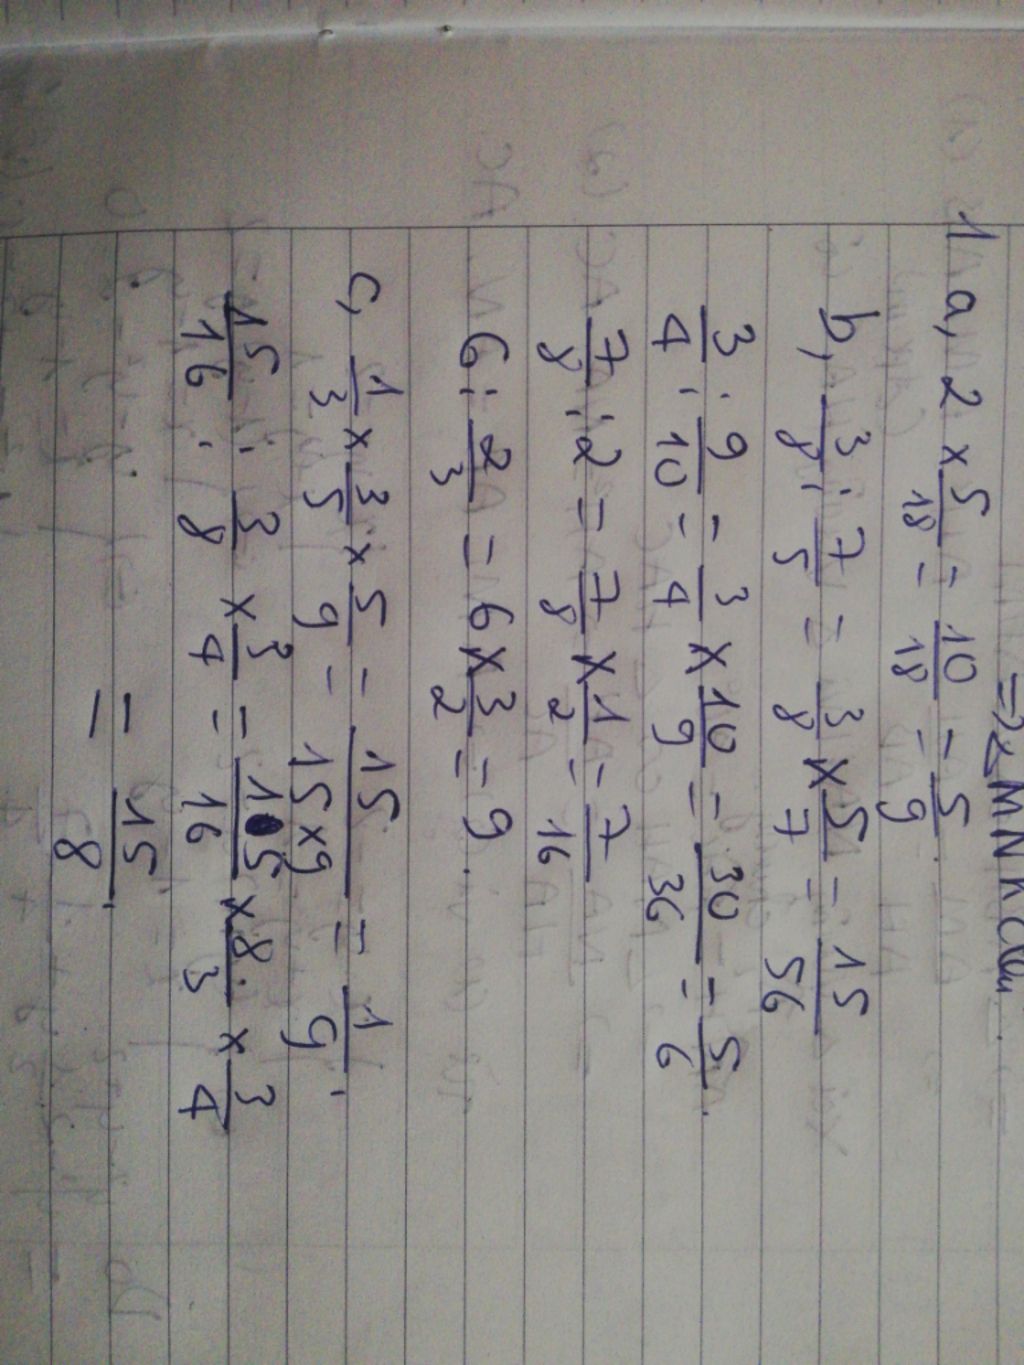 => MNKC
1 a, 2 × 5/18 = 10/18 = 5/9
b, 3/8 : 7/5 = 3/8 × 5/7 = 15/56
3/4 : 9/10 = 3/4 × 10/9 = 30/36 = 5/6.
7/8 : 2 = 7/8 × 1/2 = 7/16
6 : 2/3 = 6 × 3/2 = 9.
c, 1/3 × 3/5 × 5/9 = 15/15×9 = 1/9.
15/16 : 3/8 × 3/4 = 15/16 × 8/3 × 3/4
= 15/8.